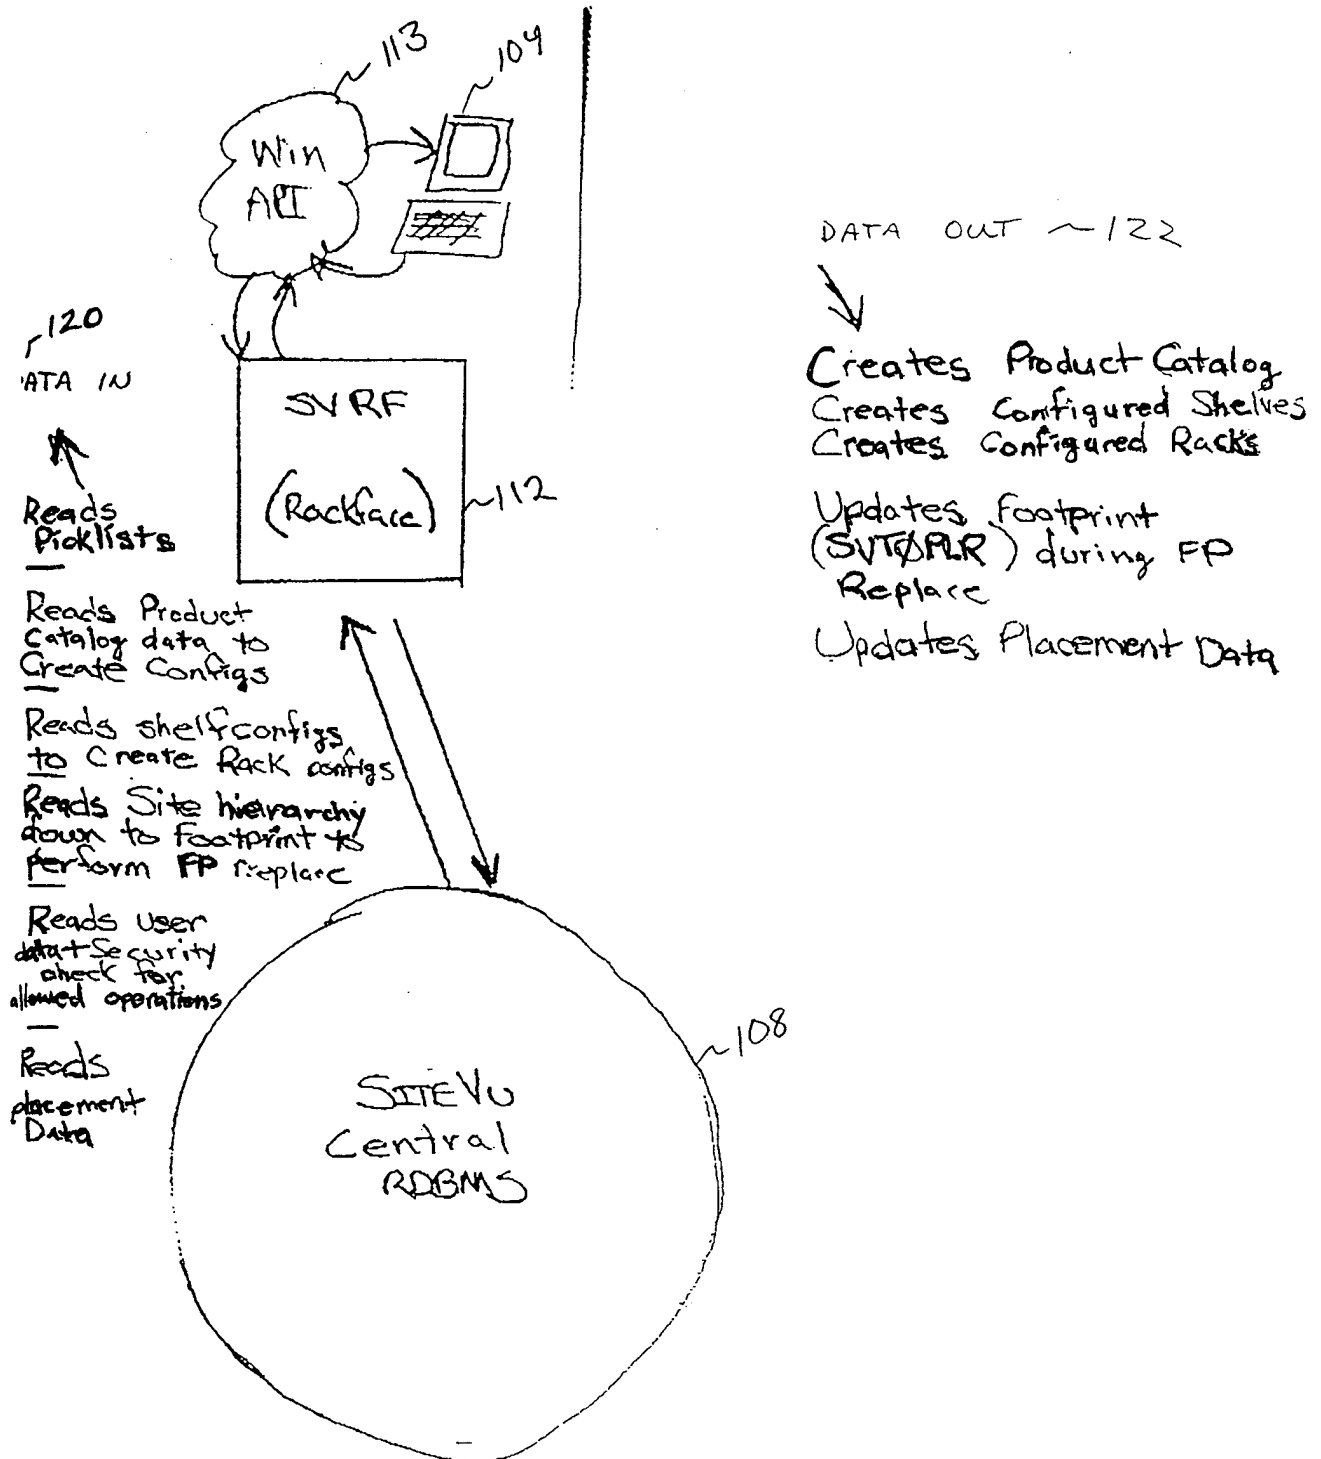 113
104
Win
API
DATA OUT ~122
120
ATA IN
SVRF
(Rackface)
112
Reads
Picklists
Reads Product
Catalog data to
Create Configs
Reads shelfconfigs
to Create Rack configs
Reads Site hierarchy
down to Footprint to
perform FP replace
Reads user
data + Security
check for
allowed operations
Reads
placement
Data
Creates Product Catalog
Creates Configured Shelves
Creates Configured Racks
Updates Footprint
(SVTØFLR) during FP
Replace
Updates Placement Data
108
SITEVU
Central
RDBMS